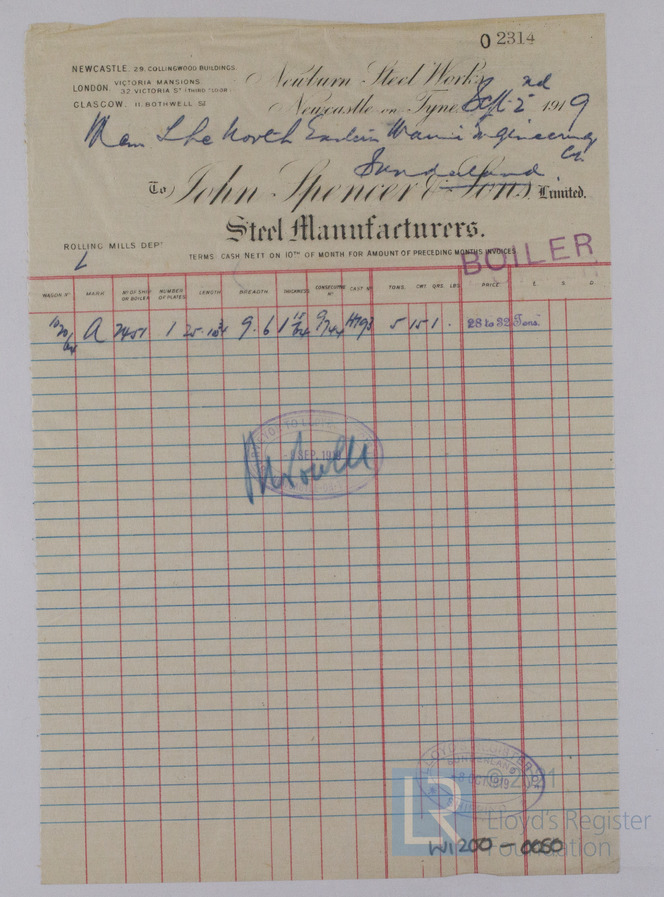 0 2314
NEWCASTLE. 29. COLLINGWOOD BUILDINGS.
LONDON. VICTORIA MANSIONS. 32 VICTORIA ST (THIRD FLOOR)
GLASGOW. 11. BOTHWELL ST
Newburn Steel Works,
Newcastle on Tyne, Sept 2nd 1919
The North Eastern Marine Engineering
Co
Sunderland
To John Spencer & Sons, Limited.
Steel Manufacturers.
ROLLING MILLS DEPT
TERMS CASH NETT ON 10TH OF MONTH FOR AMOUNT OF PRECEDING MONTHS INVOICES
BOILER
WAGON No MARK No OF SHIP OR BOILER NUMBER OF PLATES LENGTH BREADTH THICKNESS CONSECUTIVE No CAST No TONS. CWT QRS. LBS. PRICE £ S D
A 2451 1 9.6 1 15/64 5 15 1 . 28 to 32 Tons.
SEP. 1919
LLOYD'S REGISTER
SUNDERLAND
OCT 1919
© 2021
LR
Lloyd's Register
Foundation
W1200-0050